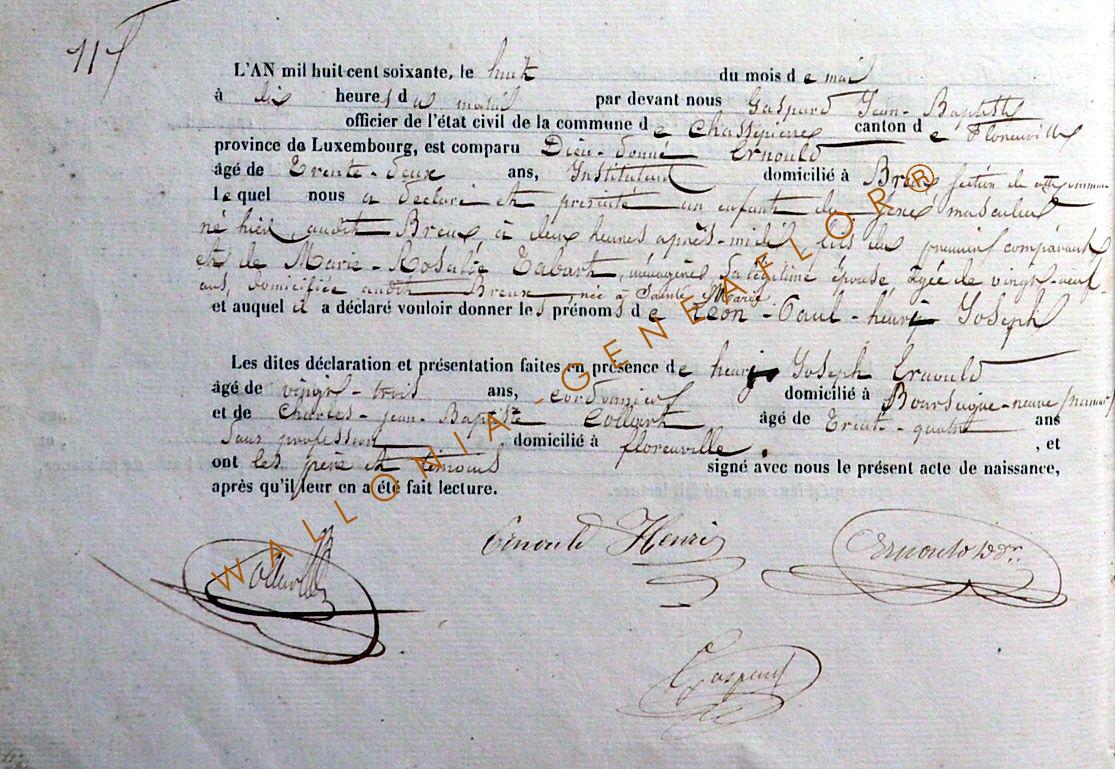 11
L'AN mil huit cent soixante, le huit du mois de mai
à dix heures du matin par devant nous Gaspard Jean-Baptiste
officier de l'état civil de la commune de Chassepierre canton de Florenville
province de Luxembourg, est comparu Dieu-donné Ernould
âgé de Trente-deux ans, Instituteur domicilié à Breux section de cette commune
lequel nous a déclaré et présenté un enfant du sexe masculin
né hier, audit Breux à deux heures après-midi, fils du premier comparant
et de Marie-Rosalie Tabart, ménagère, sa légitime épouse âgée de vingt-neuf
ans, domiciliée audit Breux, née à Sainte Marie
et auquel il a déclaré vouloir donner les prénoms de Léon-Paul-henri Joseph
Les dites déclaration et présentation faites en présence de henri Joseph Ernould
âgé de vingt-trois ans, cordonnier domicilié à Bourseigne-neuve (namur)
et de Charles-jean-Baptiste Collart âgé de Trente-quatre ans
Sans profession, domicilié à florenville, et
ont les père et témoins signé avec nous le présent acte de naissance,
après qu'il leur en a été fait lecture.
Ernould Henri
Ernould Ddn.
Gaspard
WALLONIA-GENEAFLOR®